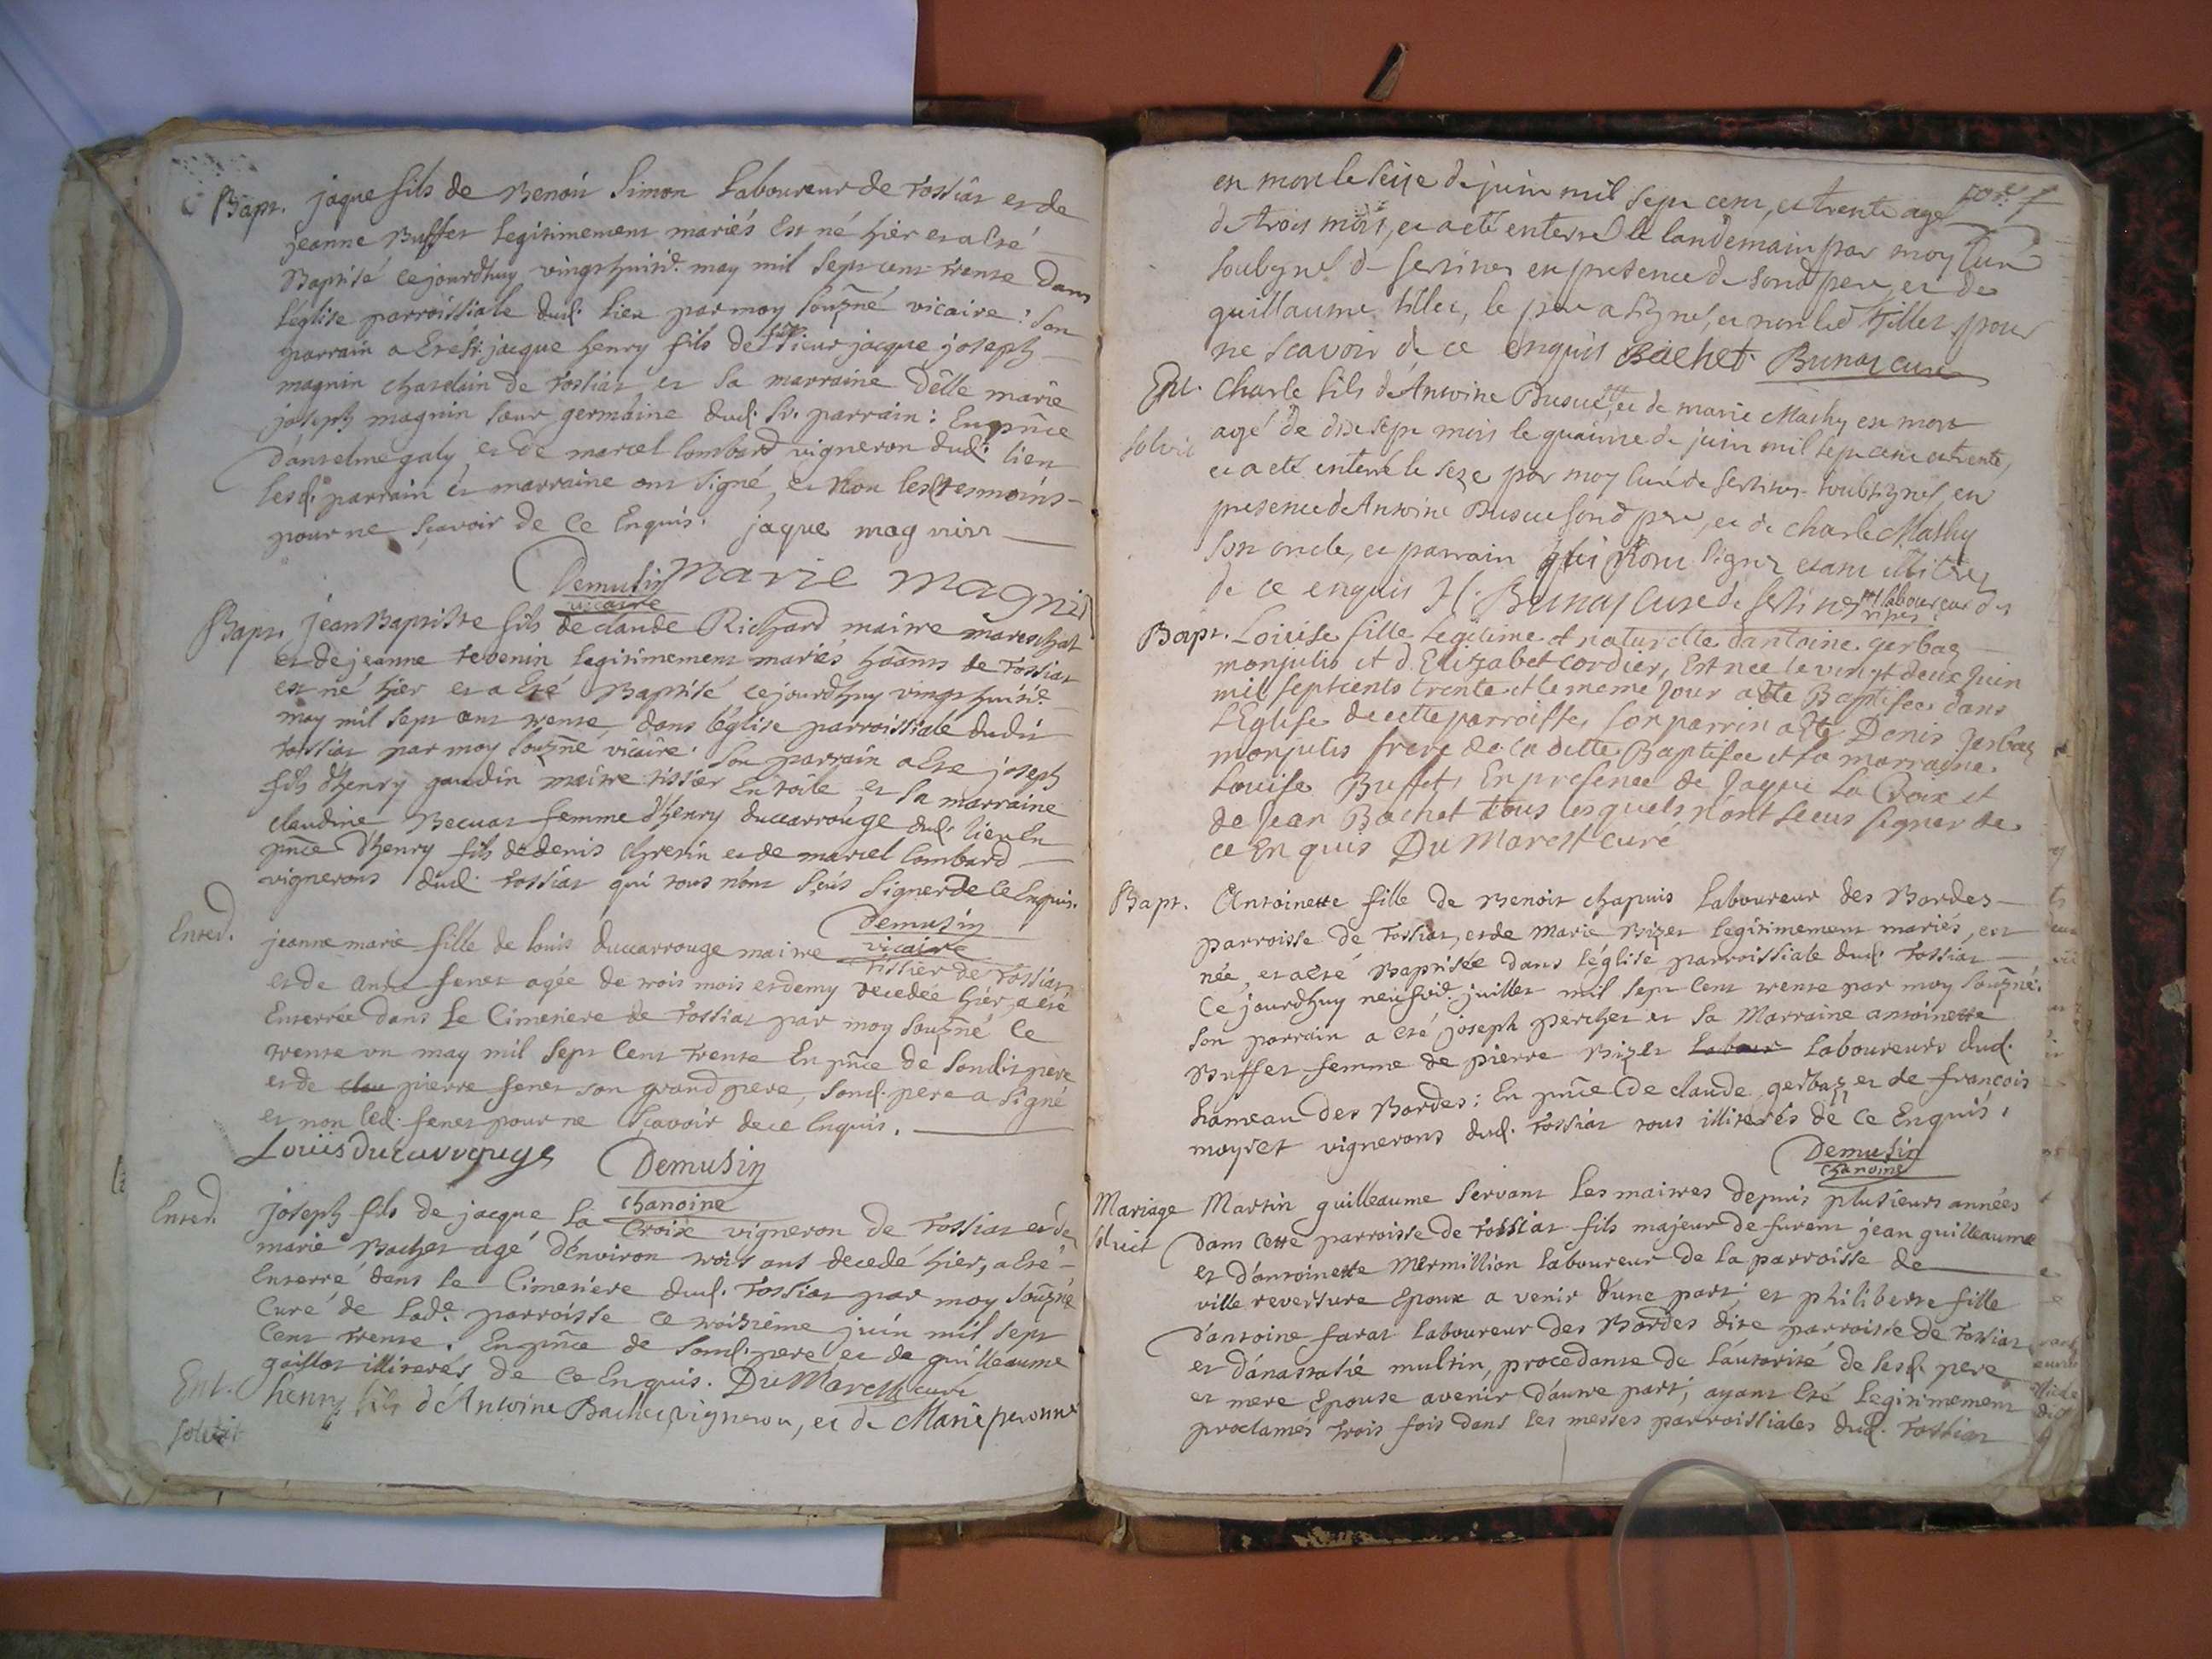 Bapt. jaque fils de Benoit Simon Laboureur de Tossiat et de
jeanne Buffet legitimement mariés Est né hier et a Eté
Baptisé cejourdhuy vingt huitié. may mil sept cent trente Dans
l'église parroissiale dud. lieu par moy souzné vicaire: Son
parrain a Eté Sr. jacque henry fils de sieur jacque joseph
magnin chatelain de Tossiat et sa marraine Délle marie
joseph magnin sœur germaine dud. Sr. parrain: En pnce
d'anselme galy et de marcel lombard vigneron dud. lieu
lesd. parrain et marraine ont signé, et non les tesmoins
pour ne sçavoir de ce Enquis. jaque magnin
Demusin marie magnin
vicaire
Bapt. jean Baptiste fils de claude Richard maitre mareschat
et de jeanne tevenin legitimement mariés hbants de Tossiat
est né hier et a Eté Baptisé cejourdhuy vingt huitié.
may mil sept cent trente, dans l'église parroissiale dudit
tossiat par moy souzné vicaire. Son parrain a Ete joseph
fils d'henry gaudin maitre tissier En toile, et sa marraine
claudine Becuat femme d'henry ducarrouge dud. lieu En
pnce d'henry fils de denis chresin et de marcel lombard
vignerons dud. tossiat qui tous n'ont sçus signer de ce Enquis.
Demusin
vicaire
Enterd. jeanne marie fille de louis ducarrouge maitre tissier de Tossiat
et de Anne fenet agée de trois mois et demy decedée hier, a eté
Enterrée dans Le Cimetiere de Tossiat par moy souzné ce
trente un may mil sept cent trente En pnce de sondit pere
et de clau pierre fenet son grand pere, sond. pere a signé
et non led. fenet pour ne sçavoir de ce Enquis.
Loüis Ducarrouge Demusin
chanoine
Enterd. joseph fils de jacque la Croix vigneron de Tossiat et de
marie Bachet agé d'Environ trois ans decedé hier, a Eté
Enterré dans le Cimetiere dud. Tossiat par moy souzné
Curé de lade. parroisse ce troizième juin mil sept
Cent trente. En pnce de sond. pere et de guilleaume
gaillot illiterés de ce Enquis. DuMarest curé
Ent. henry fils d'Antoine Bachet vigneron, et de Marie peronne
solvit
est mort le seize de juin mil sept cent, et trente agé
de trois mois, et a eté enterré le landemain par moy Curé
soubsigné de sertines en presence de sond pere, et de
guillaume tillet, le pere a signé, et non led tillet pour
ne scavoir de ce enquis Bachet Bunaz curé
Ent. Charle fils d'Antoine Busuet, et de marie Mathy est mort
solvit agé de dix sept mois le quainze de juin mil sept cent et trente,
et a eté enterré le seze par moy Curé de sertines soubsigné, en
presence de Antoine Busuet sond pere, et de Charle Mathy
son oncle, et parrain qui n'ont signé etant illitres
de ce enquis Bunaz Curé de sertines
laboureur des
Bapt. Loüise fille Legitime et naturelle d'antoine gerbaz
monjulis et d. Elizabet cordier, Est née le vingt deux juin
mil septcents trente et le meme jour a eté Baptisée dans
L'Eglise de cette parroisse, son parrin a Eté Denis gerbaz
monjulis frere de la ditte Baptisée et sa marraine
Louise Buffet, En presence de Jaque La Croix et
de Jean Bachet tous lesquels n'ont sceus signer de
ce Enquis Du Marest curé
Bapt. Antoinette fille de Benoit chapuis laboureur des Bordes
parroisse de Tossiat, et de Marie Bizet legitimement mariés, est
née, et a eté Baptisée dans l'église parroissiale dud. Tossiat
Ce jourdhuy neufvié. juillet mil sept cent trente par moy souzné.
son parrain a eté joseph perchet et sa Marraine antoinette
Buffet femme de pierre Bizet Labour Laboureurs dud.
hameau des Bordes: En pnce De claude gerbaz et de francois
moyret vignerons dud. Tossiat tous illiterés de ce Enquis.
Demusin
chanoine
Mariage Martin guilleaume servant les maitres depuis plusieurs années
solvit Dans cette parroisse de Tossiat fils majeur de furent jean guilleaume
et d'antoinette Mermillion laboureur de la parroisse de
ville reversure Epoux a venir d'une part, et philiberte fille
d'antoine farat laboureur des Bordes dite parroisse de Tossiat
et d'anastasie multin, procedante de l'autorité de sesd. pere
et mere Epouse avenir d'autre part; ayant eté Legitimement
proclamés trois fois dans les messes parroissiales dud. Tossiat